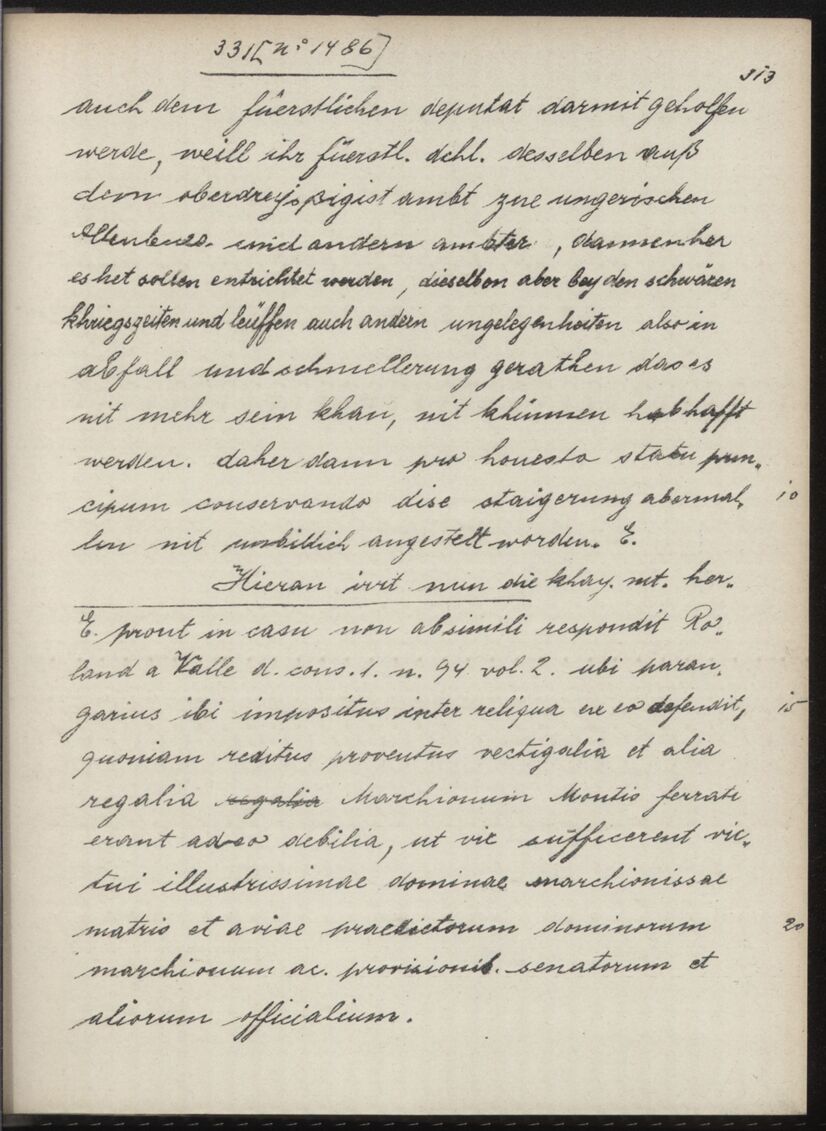 331[n° 1486]
313
auch dem füerstlichen deputat darmit geholfen
werde, weill ihr füerstl. dchl. desselben auß
dem oberdreyßigist ambt zue ungerischen
Altenburg und andern ambter, dannenher
es het sollen entrichtet werden, dieselben aber bey den schwären
khriegszeiten und leüffen auch andern ungelegenheiten also in
abfall und schmellerung gerathen das es
nit mehr sein khan, nit khünnen habhafft
werden. daher dann pro honesto statu prin„
cipum conservando dise staigerung abermal„ 10
len nit unbillich angestelt worden. E.
Hieran irrt nun die khay. mt. her„
E. prout in casu non absimili respondit Ro„
land a Valle d. cons. 1. n. 94 vol. 2. ubi paran„
garius ibi impositus inter reliqua ex eo defendit, 15
quoniam reditus proventus vectigalia et alia
regalia regalia Marchionum Montis ferrati
erant adeo debilia, ut vix sufficerent vic„
tui illustrissimae dominae marchionissae
matris et aviae praedictorum dominorum 20
marchionum ac. provisionib. senatorum et
aliorum officialium.